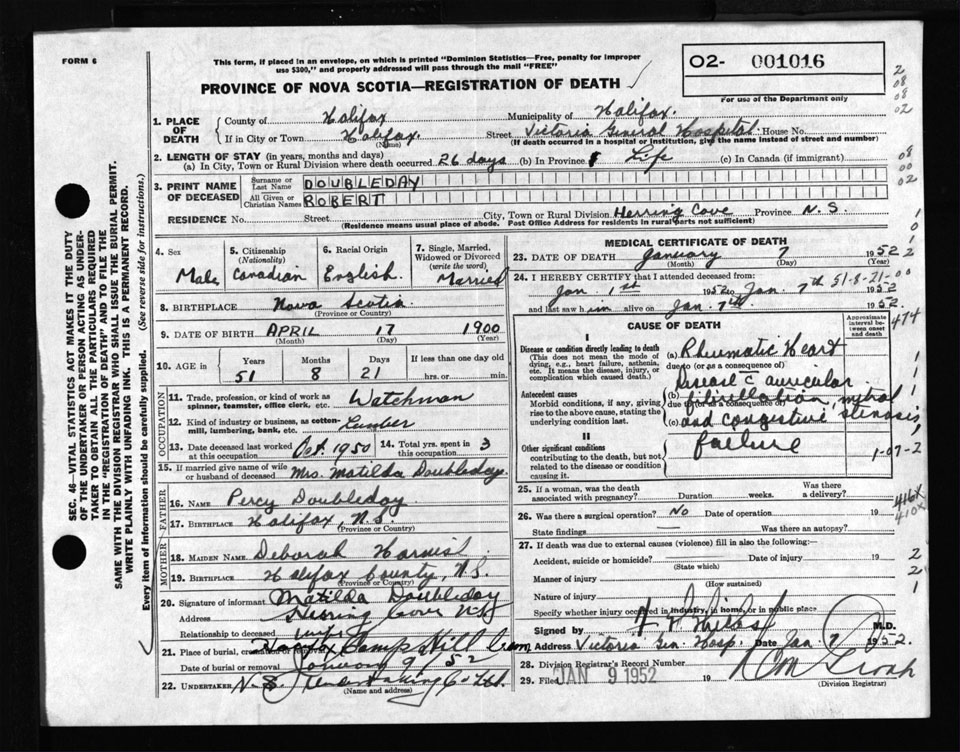 FORM 6
This form, if placed in an envelope, on which is printed "Dominion Statistics—Free, penalty for improper
use $300," and properly addressed will pass through the mail "FREE"
PROVINCE OF NOVA SCOTIA—REGISTRATION OF DEATH
O2- 001016
For use of the Department only
2
08
08
02
08
00
02
SEC. 46—VITAL STATISTICS ACT MAKES IT THE DUTY
OF THE UNDERTAKER OR PERSON ACTING AS UNDER-
TAKER TO OBTAIN ALL THE PARTICULARS REQUIRED
IN THE "REGISTRATION OF DEATH" AND TO FILE THE
SAME WITH THE DIVISION REGISTRAR WHO SHALL ISSUE THE BURIAL PERMIT.
WRITE PLAINLY WITH UNFADING INK. THIS IS A PERMANENT RECORD.
Every item of information should be carefully supplied. (See reverse side for instructions.)
1. PLACE OF DEATH
County of Halifax Municipality of Halifax.
If in City or Town Halifax. Street Victoria General Hospital. House No.
(Name) (If death occurred in a hospital or institution, give the name instead of street and number)
2. LENGTH OF STAY (in years, months and days)
(a) In City, Town or Rural Division where death occurred 26 days (b) In Province Life (c) In Canada (if immigrant)
3. PRINT NAME OF DECEASED
Surname or Last Name DOUBLEDAY
All Given or Christian Names ROBERT
RESIDENCE No. Street City, Town or Rural Division Herring Cove Province N.S.
(Residence means usual place of abode. Post Office Address for residents in rural parts not sufficient)
4. Sex Male
5. Citizenship (Nationality) Canadian
6. Racial Origin English.
7. Single, Married, Widowed or Divorced (write the word) Married
8. BIRTHPLACE Nova Scotia
(Province or Country)
9. DATE OF BIRTH APRIL 17 1900
(Month) (Day) (Year)
10. AGE in Years Months Days If less than one day old
51 8 21 hrs. or min.
OCCUPATION
11. Trade, profession, or kind of work as
spinner, teamster, office clerk, etc. Watchman
12. Kind of industry or business, as cotton-
mill, lumbering, bank, etc. Lumber
13. Date deceased last worked at this occupation Oct. 1950 14. Total yrs. spent in this occupation 3
15. If married give name of wife
or husband of deceased Mrs. Matilda Doubleday.
FATHER
16. NAME Percy Doubleday
17. BIRTHPLACE Halifax N.S.
(Province or Country)
MOTHER
18. MAIDEN NAME Deborah
19. BIRTHPLACE Halifax County, N.S.
(Province or Country)
20. Signature of informant Matilda Doubleday
Address Herring Cove N.S.
Relationship to deceased wife
21. Place of burial, Camp Hill Cem
Date of burial or removal January 9 / 52
22. UNDERTAKER N.S. Undertaking Co Ltd.
(Name and address)
MEDICAL CERTIFICATE OF DEATH
23. DATE OF DEATH January 7 1952
(Month) (Day) (Year)
24. I HEREBY CERTIFY that I attended deceased from: 51-8-21-00
Jan. 1st 1952 to Jan. 7th 1952
and last saw him alive on Jan. 7th 1952.
CAUSE OF DEATH
Approximate interval between onset and death
I
Disease or condition directly leading to death
(This does not mean the mode of
dying, e.g., heart failure, asthenia,
etc. It means the disease, injury, or
complication which caused death.)
(a) Rheumatic Heart
due to (or as a consequence of)
Disease c̄ auricular
Antecedent causes
Morbid conditions, if any, giving
rise to the above cause, stating the
underlying condition last.
(b) fibrillation, mitral
due to (or as a consequence of)
(c) and congestive stenosis
failure
II
Other significant conditions
contributing to the death, but not
related to the disease or condition
causing it.
474
1-07-2
25. If a woman, was the death
associated with pregnancy? Duration weeks. Was there a delivery?
26. Was there a surgical operation? No Date of operation 19
State findings Was there an autopsy?
416X
410X
27. If death was due to external causes (violence) fill in also the following:
Accident, suicide or homicide? Date of injury 19
(State which)
Manner of injury
(How sustained)
Nature of injury
Specify whether injury occurred in industry, in home, or in public place
Signed by M.D.
Address Victoria Gen. Hosp. Date Jan 7 1952.
28. Division Registrar's Record Number
29. Filed JAN 9 1952 19
(Division Registrar)